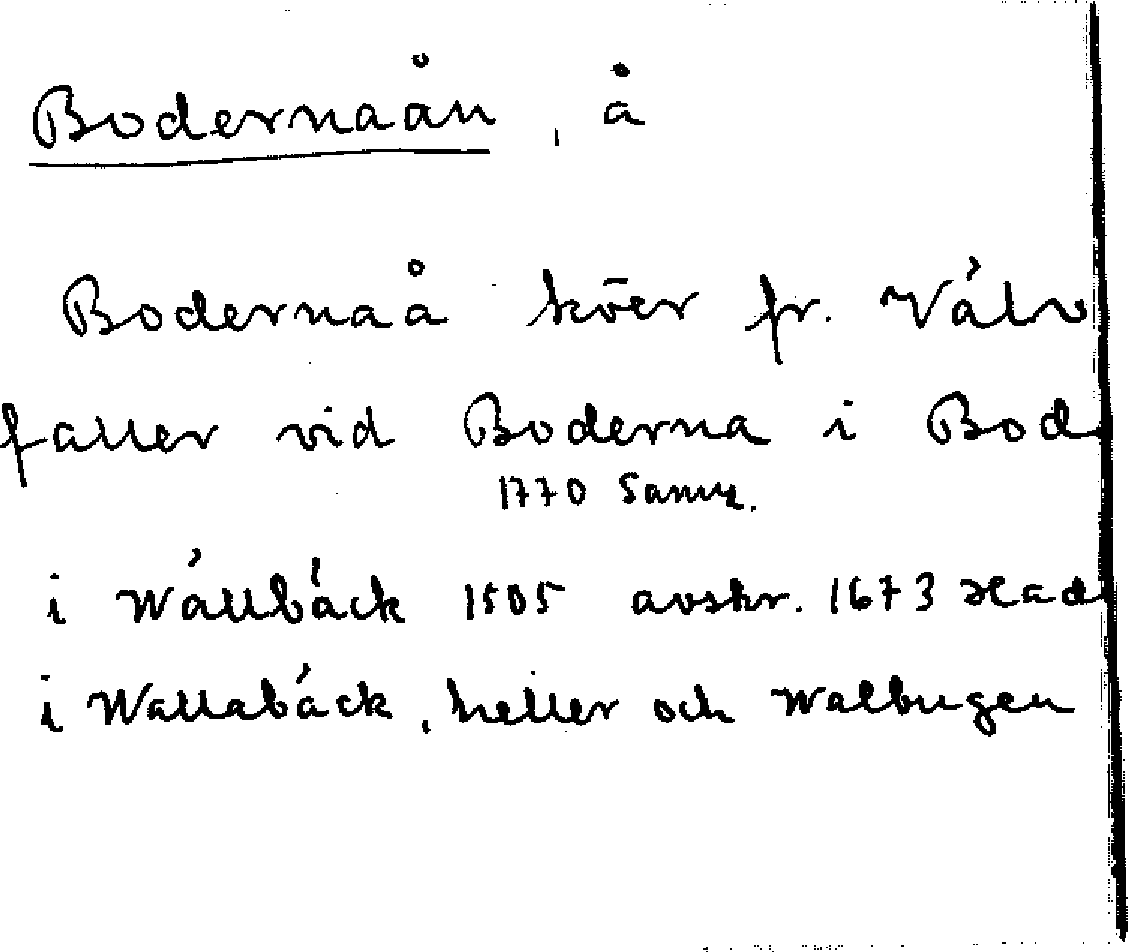 Bodernaån, å
Bodernaå köer fr. Válv
faller vid Boderna i Bod
1770 Samz.
i Wállbáck 1505 avskr. 1673 Had
i Wallabáck, heller och Walbugen